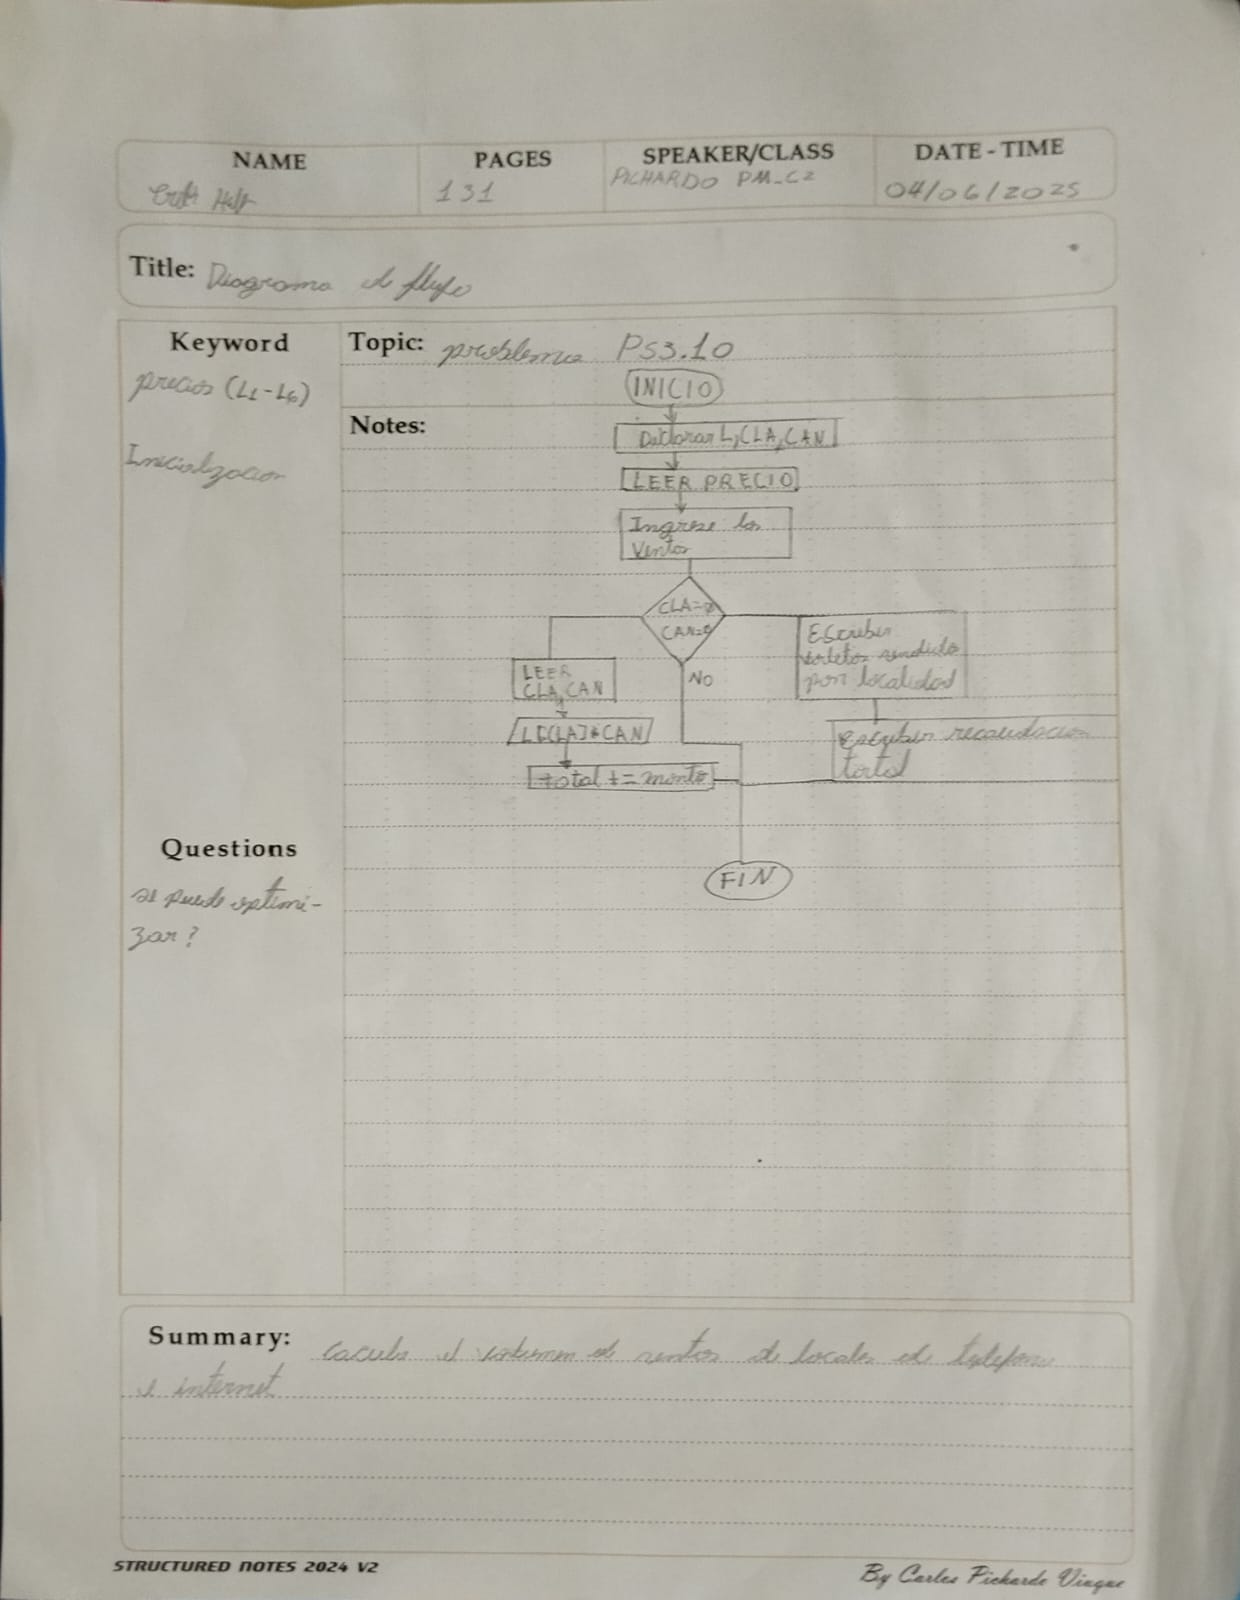 NAME
PAGES
SPEAKER/CLASS
DATE - TIME
131
PICHARDO PM-C2
04/06/2025
Title: Diagrama de flujo
Keyword
precios (L1-L6)
Inicialización
Topic: problema PS3.10
INICIO
Notes:
Declarar L, CLA, CAN
LEER PRECIO
Ingrese los
Ventas
CLA=0
CAN=0
LEER
CLA, CAN
L[CLA]*CAN
total += monto
NO
Escribir
boletos vendidos
por localidad
escribir recaudacion
total
FIN
Questions
se puede optimi-
zar?
Summary: de ventas de locales de telefono
e internet
STRUCTURED NOTES 2024 V2
By Carlos Pichardo Viuque